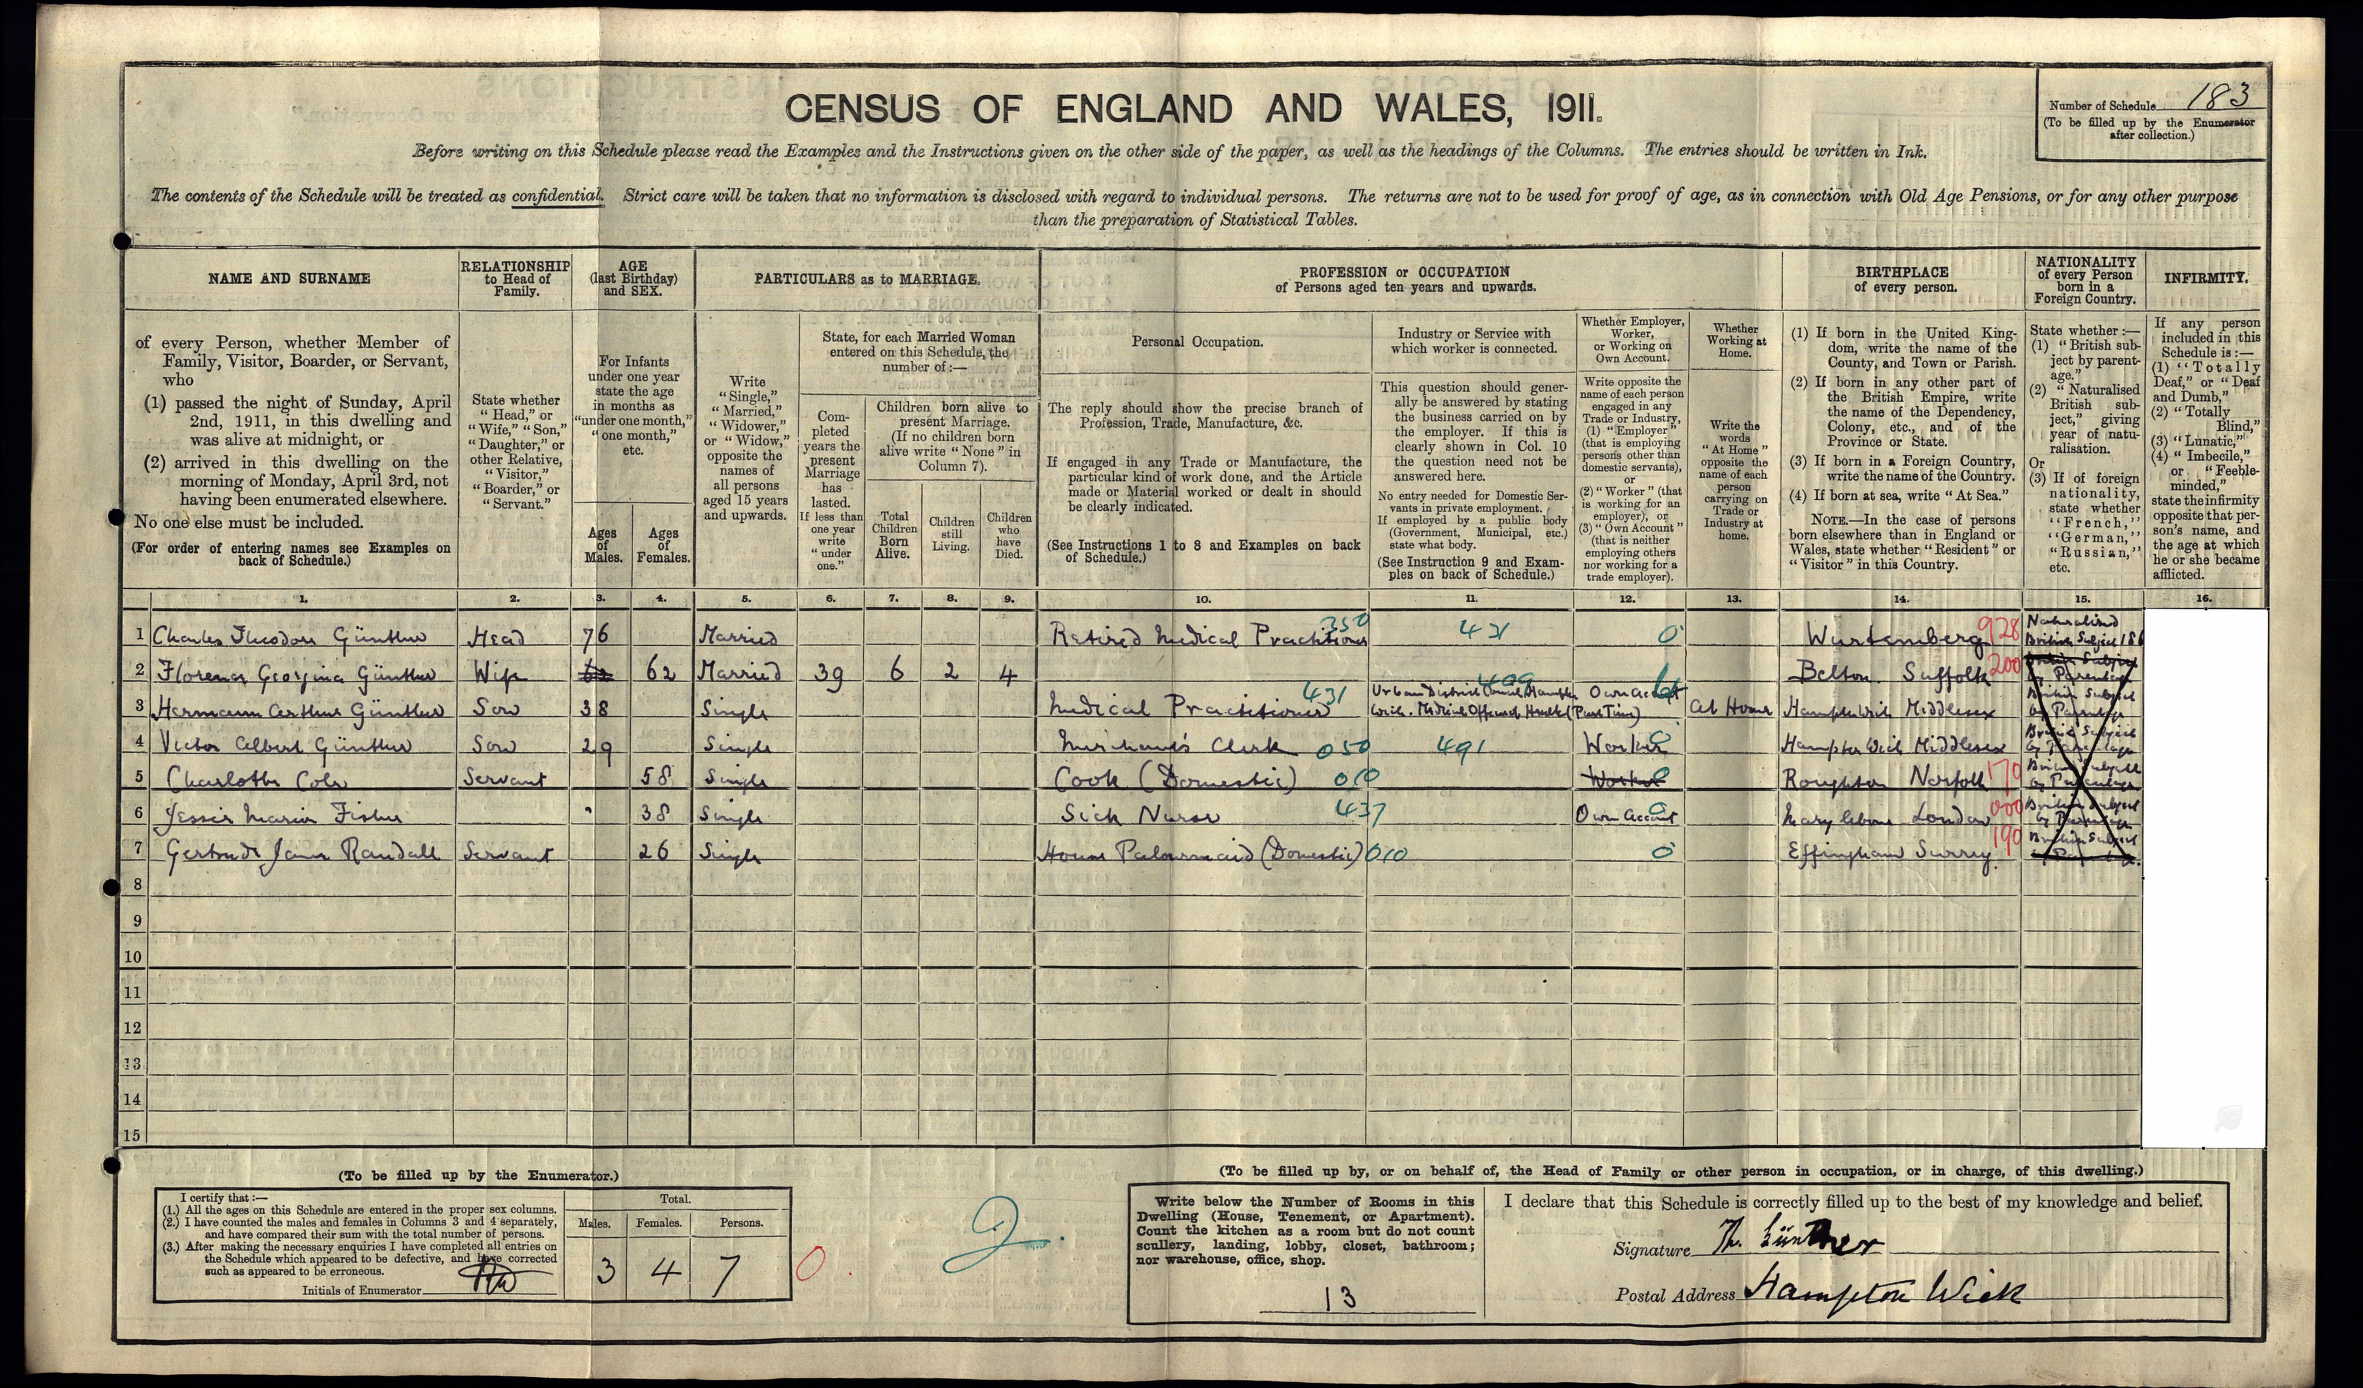 CENSUS OF ENGLAND AND WALES, 1911.
Number of Schedule 183
(To be filled up by the Enumerator
after collection.)
Before writing on this Schedule please read the Examples and the Instructions given on the other side of the paper, as well as the headings of the Columns. The entries should be written in Ink.
The contents of the Schedule will be treated as confidential. Strict care will be taken that no information is disclosed with regard to individual persons. The returns are not to be used for proof of age, as in connection with Old Age Pensions, or for any other purpose
than the preparation of Statistical Tables.
NAME AND SURNAME
RELATIONSHIP
to Head of
Family.
AGE
(last Birthday)
and SEX.
PARTICULARS as to MARRIAGE.
PROFESSION or OCCUPATION
of Persons aged ten years and upwards.
BIRTHPLACE
of every person.
NATIONALITY
of every Person
born in a
Foreign Country.
INFIRMITY.
of every Person, whether Member of
Family, Visitor, Boarder, or Servant,
who
(1) passed the night of Sunday, April
2nd, 1911, in this dwelling and
was alive at midnight, or
(2) arrived in this dwelling on the
morning of Monday, April 3rd, not
having been enumerated elsewhere.
No one else must be included.
(For order of entering names see Examples on
back of Schedule.)
State whether
"Head," or
"Wife," "Son,"
"Daughter," or
other Relative,
"Visitor,"
"Boarder," or
"Servant."
For Infants
under one year
state the age
in months as
"under one month,"
"one month,"
etc.
Ages
of
Males.
Ages
of
Females.
Write
"Single,"
"Married,"
"Widower,"
or "Widow,"
opposite the
names of
all persons
aged 15 years
and upwards.
State, for each Married Woman
entered on this Schedule, the
number of:—
Com-
pleted
years the
present
Marriage
has
lasted.
If less than
one year
write
"under
one."
Children born alive to
present Marriage.
(If no children born
alive write "None" in
Column 7).
Total
Children
Born
Alive.
Children
still
Living.
Children
who
have
Died.
Personal Occupation.
The reply should show the precise branch of
Profession, Trade, Manufacture, &c.
If engaged in any Trade or Manufacture, the
particular kind of work done, and the Article
made or Material worked or dealt in should
be clearly indicated.
(See Instructions 1 to 8 and Examples on back
of Schedule.)
Industry or Service with
which worker is connected.
This question should gener-
ally be answered by stating
the business carried on by
the employer. If this is
clearly shown in Col. 10
the question need not be
answered here.
No entry needed for Domestic Ser-
vants in private employment.
If employed by a public body
(Government, Municipal, etc.)
state what body.
(See Instruction 9 and Exam-
ples on back of Schedule.)
Whether Employer,
Worker,
or Working on
Own Account.
Write opposite the
name of each person
engaged in any
Trade or Industry,
(1) "Employer"
(that is employing
persons other than
domestic servants),
or
(2) "Worker" (that
is working for an
employer), or
(3) "Own Account"
(that is neither
employing others
nor working for a
trade employer).
Whether
Working at
Home.
Write the
words
"At Home"
opposite the
name of each
person
carrying on
Trade or
Industry at
home.
(1) If born in the United King-
dom, write the name of the
County, and Town or Parish.
(2) If born in any other part of
the British Empire, write
the name of the Dependency,
Colony, etc., and of the
Province or State.
(3) If born in a Foreign Country,
write the name of the Country.
(4) If born at sea, write "At Sea."
NOTE.—In the case of persons
born elsewhere than in England or
Wales, state whether "Resident" or
"Visitor" in this Country.
State whether:—
(1) "British sub-
ject by parent-
age."
(2) "Naturalised
British sub-
ject," giving
year of natu-
ralisation.
Or
(3) If of foreign
nationality,
state whether
"French,"
"German,"
"Russian,"
etc.
If any person
included in this
Schedule is:—
(1) "Totally
Deaf," or "Deaf
and Dumb,"
(2) "Totally
Blind,"
(3) "Lunatic,"
(4) "Imbecile,"
or "Feeble-
minded,"
state the infirmity
opposite that per-
son's name, and
the age at which
he or she became
afflicted.
1. 2. 3. 4. 5. 6. 7. 8. 9. 10. 11. 12. 13. 14. 15. 16.
1 Charles Theodore Günther Head 76 Married Retired Medical Practitioner 350 421 0 Wurtemberg 928 Naturalised British Subject 186
2 Florence Georgina Günther Wife 62 62 Married 39 6 2 4 Belton Suffolk 200 British Subject by Parentage
3 Hermann Arthur Günther Son 38 Single Medical Practitioner 431 Urban District Council Hampton Wick. Medical Officer of Health (Part Time) 409 Own Account At Home Hampton Wick Middlesex British Subject by Parentage
4 Victor Albert Günther Son 29 Single Merchant's Clerk 050 491 Worker Hampton Wick Middlesex British Subject by Parentage
5 Charlotte Cole Servant 58 Single Cook (Domestic) 010 Worker 0 Roughton Norfolk 170 British Subject by Parentage
6 Jessie Marion Fisher 38 Single Sick Nurse 437 Own Account 0 Marylebone London 000 British Subject by Parentage
7 Gertrude Jane Randall Servant 26 Single House Palourmaid (Domestic) 010 0 Effingham Surrey 190 British Subject by Parentage
8
9
10
11
12
13
14
15
(To be filled up by the Enumerator.)
I certify that:—
(1.) All the ages on this Schedule are entered in the proper sex columns.
(2.) I have counted the males and females in Columns 3 and 4 separately,
and have compared their sum with the total number of persons.
(3.) After making the necessary enquiries I have completed all entries on
the Schedule which appeared to be defective, and have corrected
such as appeared to be erroneous.
Initials of Enumerator
Total.
Males. Females. Persons.
3 4 7
0.
(To be filled up by, or on behalf of, the Head of Family or other person in occupation, or in charge, of this dwelling.)
Write below the Number of Rooms in this
Dwelling (House, Tenement, or Apartment).
Count the kitchen as a room but do not count
scullery, landing, lobby, closet, bathroom;
nor warehouse, office, shop.
13
I declare that this Schedule is correctly filled up to the best of my knowledge and belief.
Signature Th. Günther
Postal Address Hampton Wick